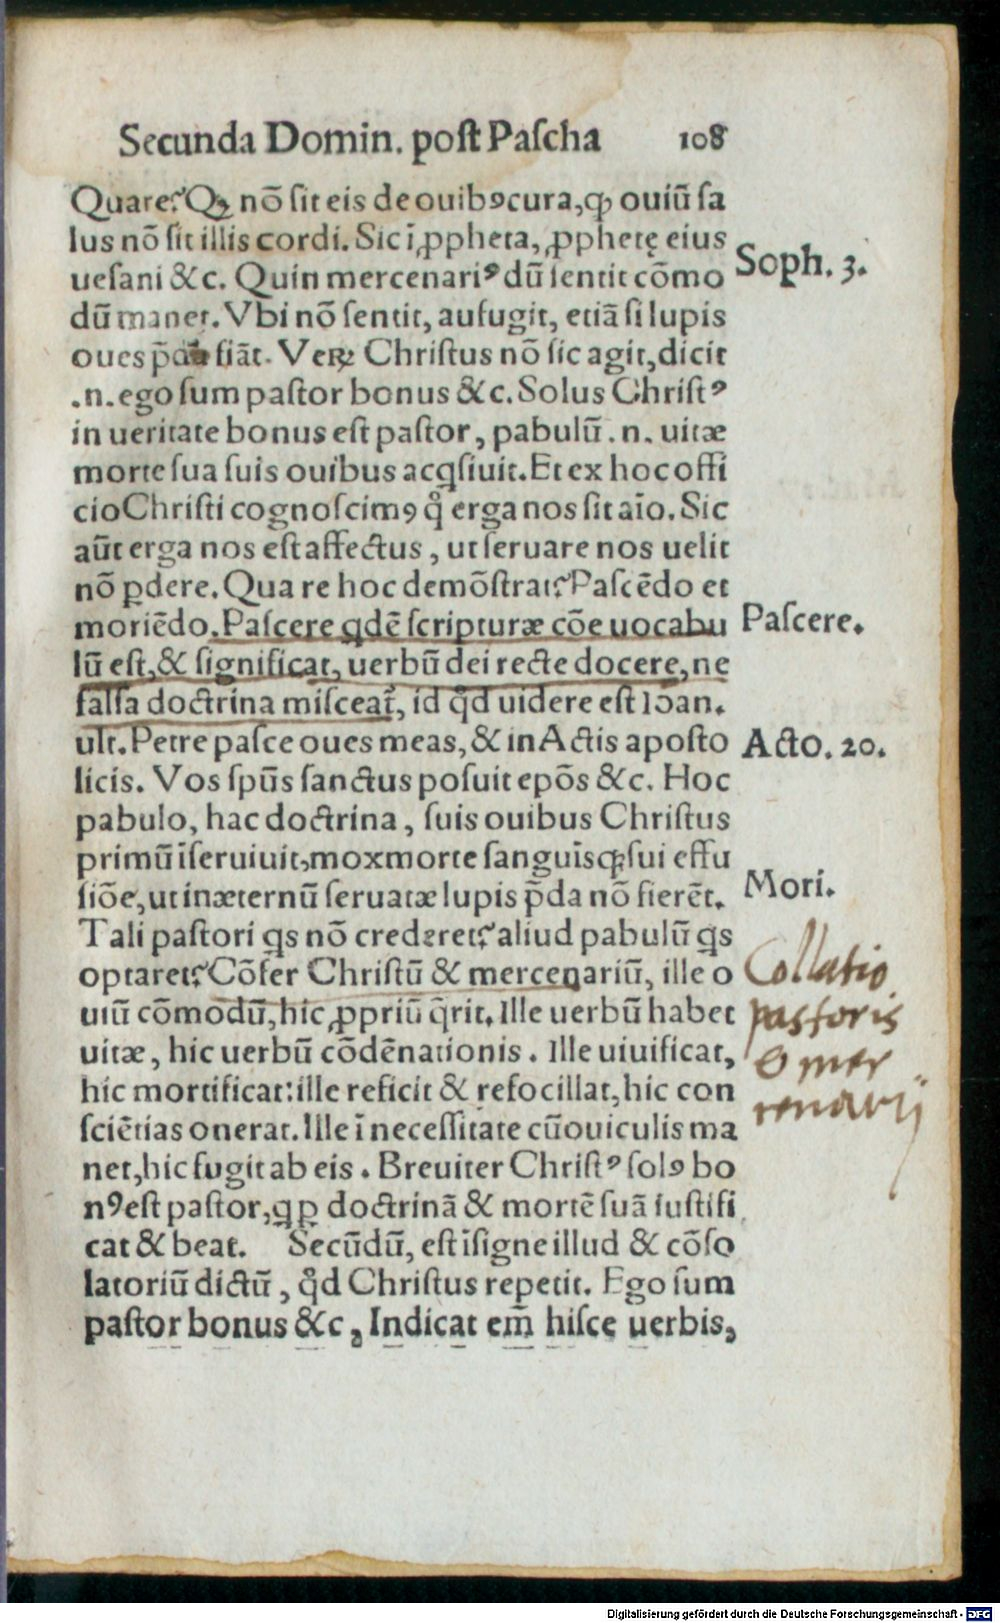 Secunda Domin. post Pascha 108
Quare? Qꝫ nō sit eis de ouibꝰ cura, ꝙ ouiū sa
lus nō sit illis cordi. Sic ī ꝓpheta, ꝓphetę eius
uesani &c. Quin mercenariꝰ dū sentit cōmo
dū manet. Vbi nō sentit, aufugit, etiā si lupis
oues p̄da fiāt. Veꝝ Christus nō sic agit, dicit
.n. ego sum pastor bonus &c. Solus Christꝰ
in ueritate bonus est pastor, pabulū .n. uitæ
morte sua suis ouibus acꝗsiuit. Et ex hoc offi
cio Christi cognoscimꝰ q̊ erga nos sit aīo. Sic
aūt erga nos est affectus, ut seruare nos uelit
nō ꝑdere. Qua re hoc demōstrat? Pascēdo et
moriēdo. Pascere ꝗdē scripturæ cōe uocabu
lū est, & significat, uerbū dei recte docere, ne
falsa doctrina misceat᷑, id qd̊ uidere est Ioan.
ult. Petre pasce oues meas, & in Actis aposto
licis. Vos spūs sanctus posuit epōs &c. Hoc
pabulo, hac doctrina, suis ouibus Christus
primū īseruiuit, mox morte sanguīsqꝫ sui effu
siōe, ut in æternū seruatæ lupis p̄da nō fierēt.
Tali pastori ꝗs nō crederet? aliud pabulū ꝗs
optaret? Cōfer Christū & mercenariū, ille o
uiū cōmodū, hic ꝓpriū q̄rit. Ille uerbū habet
uitæ, hic uerbū cōdēnationis. Ille uiuificat,
hic mortificat: ille reficit & refocillat, hic con
sciētias onerat. Ille ī necessitate cū ouiculis ma
net, hic fugit ab eis. Breuiter Christꝰ solꝰ bo
nꝰ est pastor, ꝗ ꝑ doctrinā & mortē suā iustifi
cat & beat. Secūdū, est īsigne illud & cōso
latoriū dictū, qd̊ Christus repetit. Ego sum
pastor bonus &c, Indicat em̄ hisce uerbis,
Soph. 3.
Pascere.
Acto. 20.
Mori.
Collatio
pastoris
& mer
cenarij
Digitalisierung gefördert durch die Deutsche Forschungsgemeinschaft - DFG